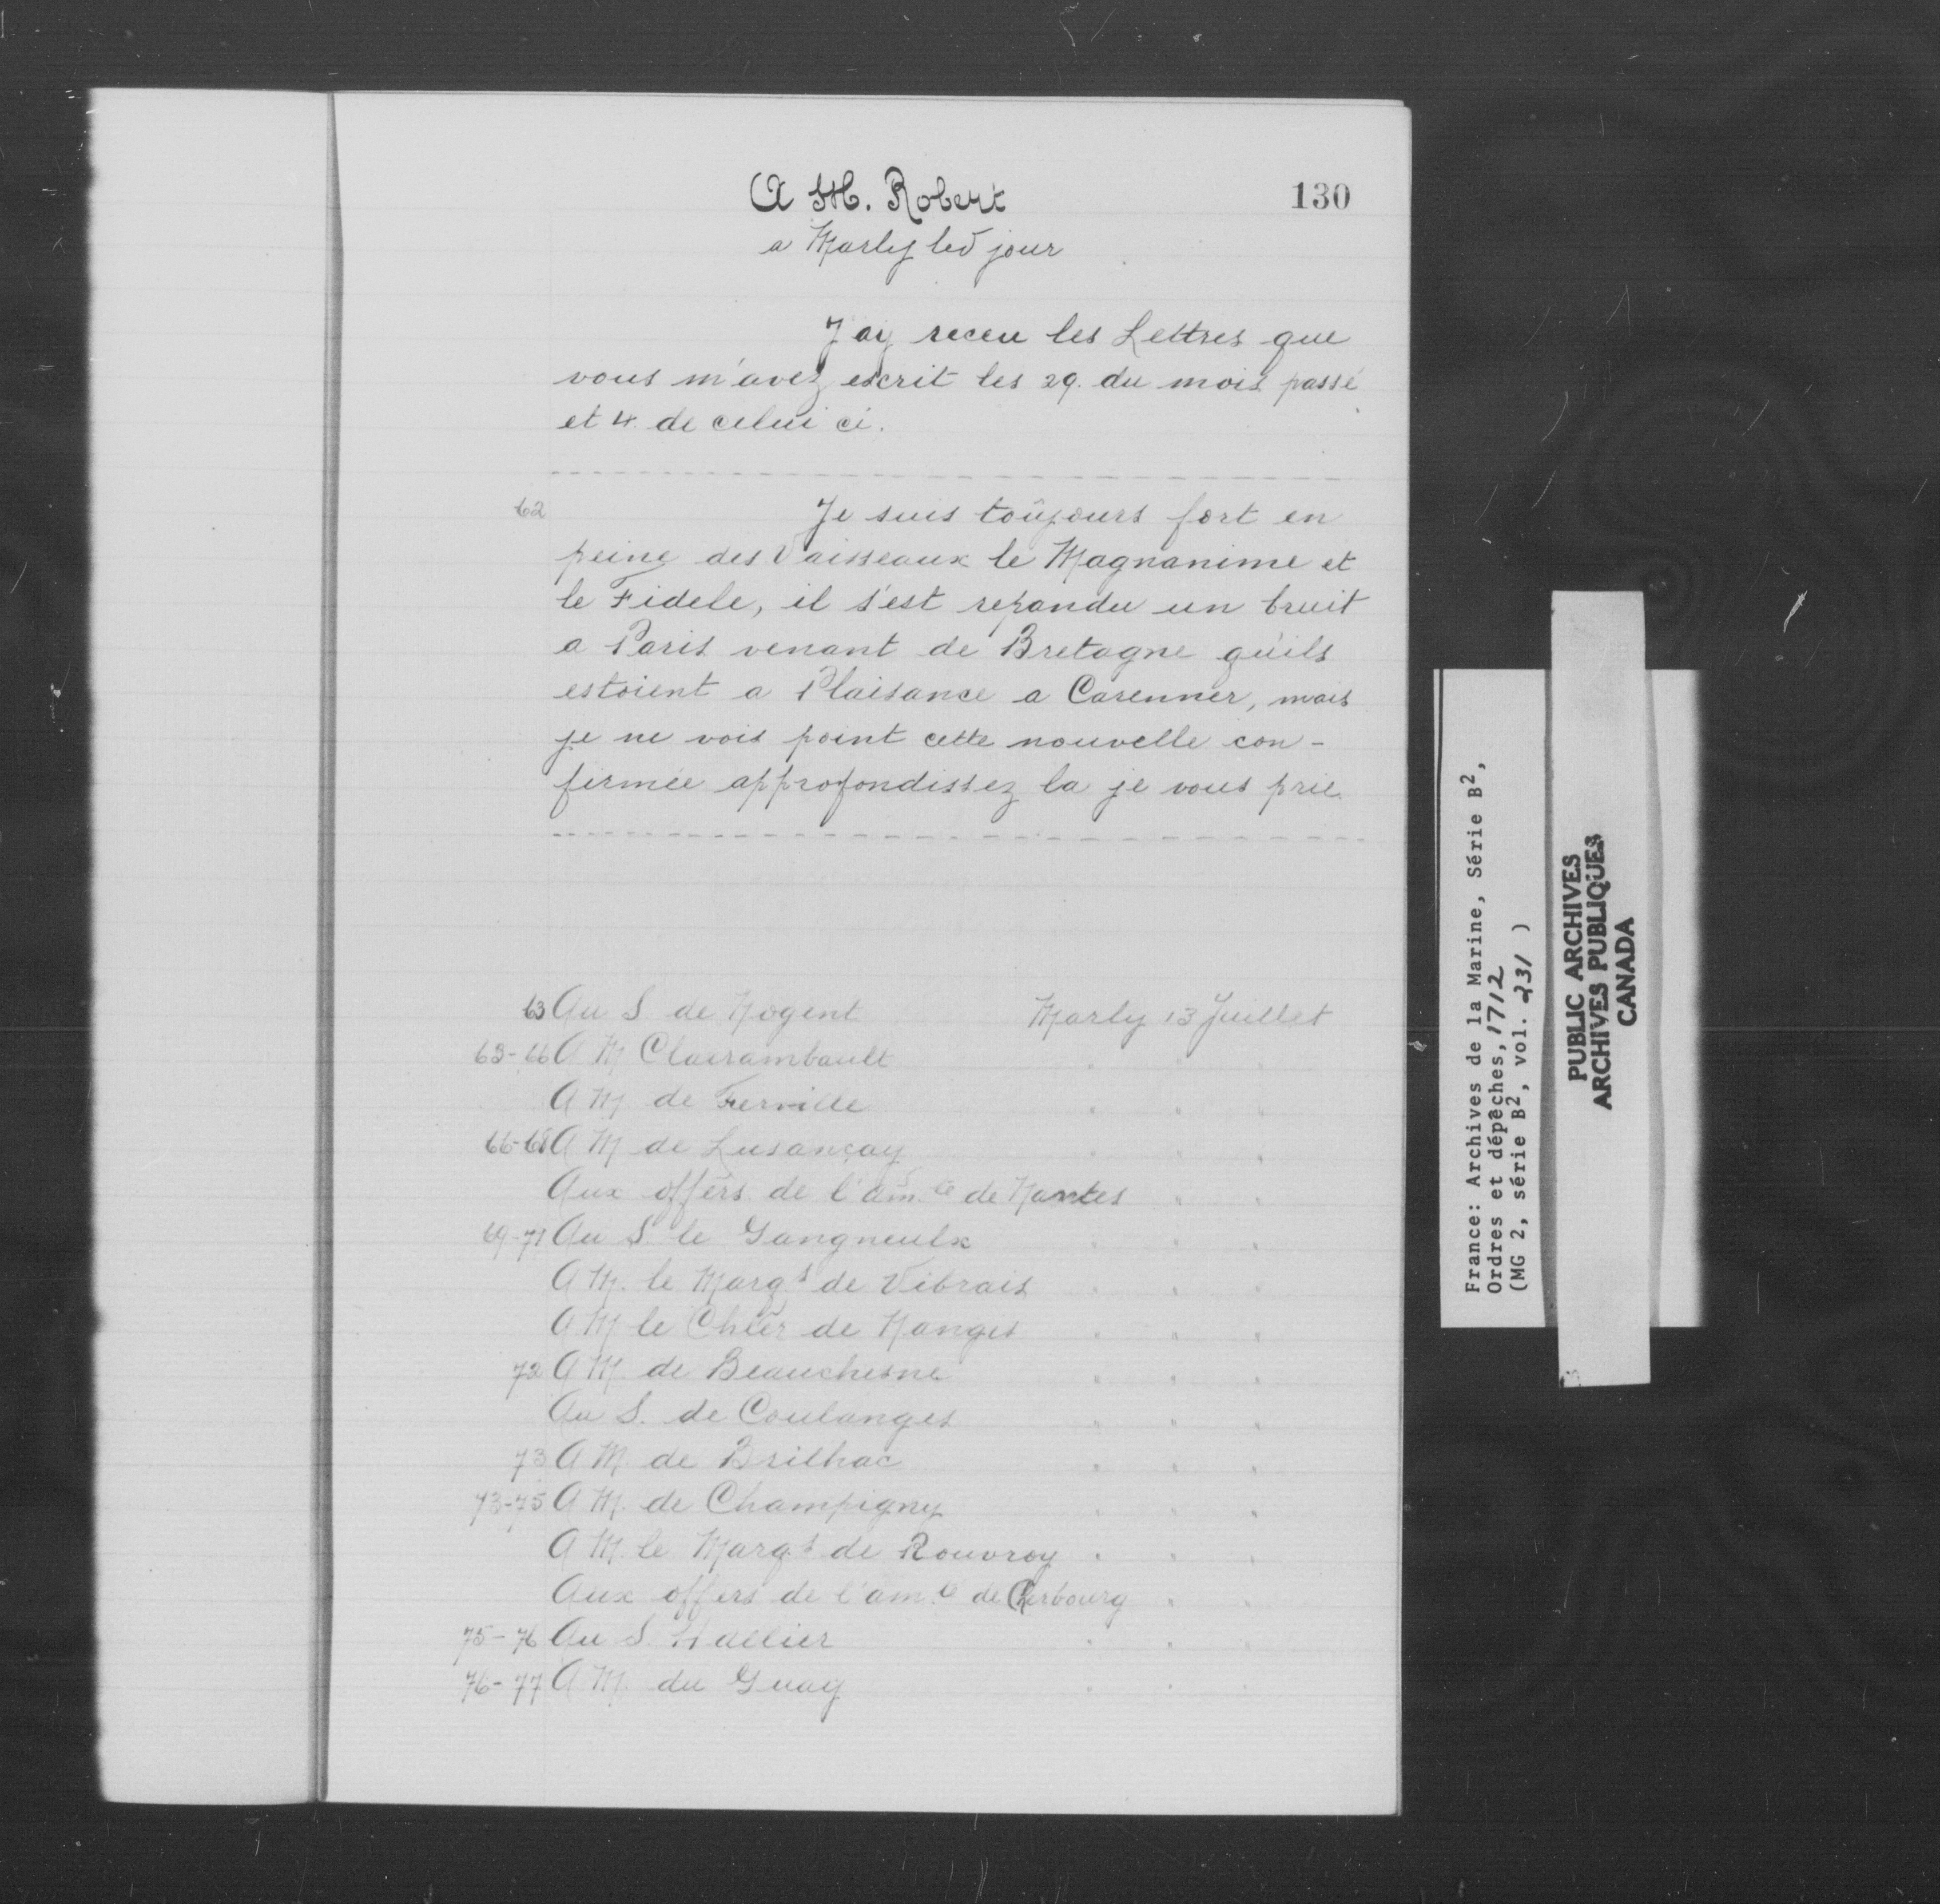 130
A M. Robert
a Marly led jour
J'ay receu les Lettres que
vous m'avez escrit les 29. du mois passé
et 4. de celui ci.
62 Je suis toûjours fort en
peine des Vaisseaux le Magnanime et
le Fidele, il s'est repandu un bruit
a Paris venant de Bretagne qu'ils
estoient a Plaisance a Carenner, mais
je ne vois point cette nouvelle con-
firmée approfondissez la je vous prie.
63 Au S. de Nogent Marly 13 Juillet
63-66 A M Clairambault " " "
A M. de Ferville " " "
66-68 A M de Lusançay " " "
Aux offers de l'am.té de Nantes " "
69-71 Au S. le Gangneulx " " "
A M. le Marqs de Vibrais " " "
A M le Chler de Nangis " " "
72 A M. de Beauchesne " " "
Au S. de Coulanges " " "
73 A M. de Brilhac " " "
73-75 A M. de Champigny " " "
A M. le Marqs de Rouvroy " " "
Aux offers de l'am.té de Cherbourg " "
75-76 Au S. Hallier " " "
76-77 A M. du Guay " " "
France: Archives de la Marine, Série B2,
Ordres et dépêches, 1712
(MG 2, série B2, vol. 231 )
PUBLIC ARCHIVES
ARCHIVES PUBLIQUES
CANADA